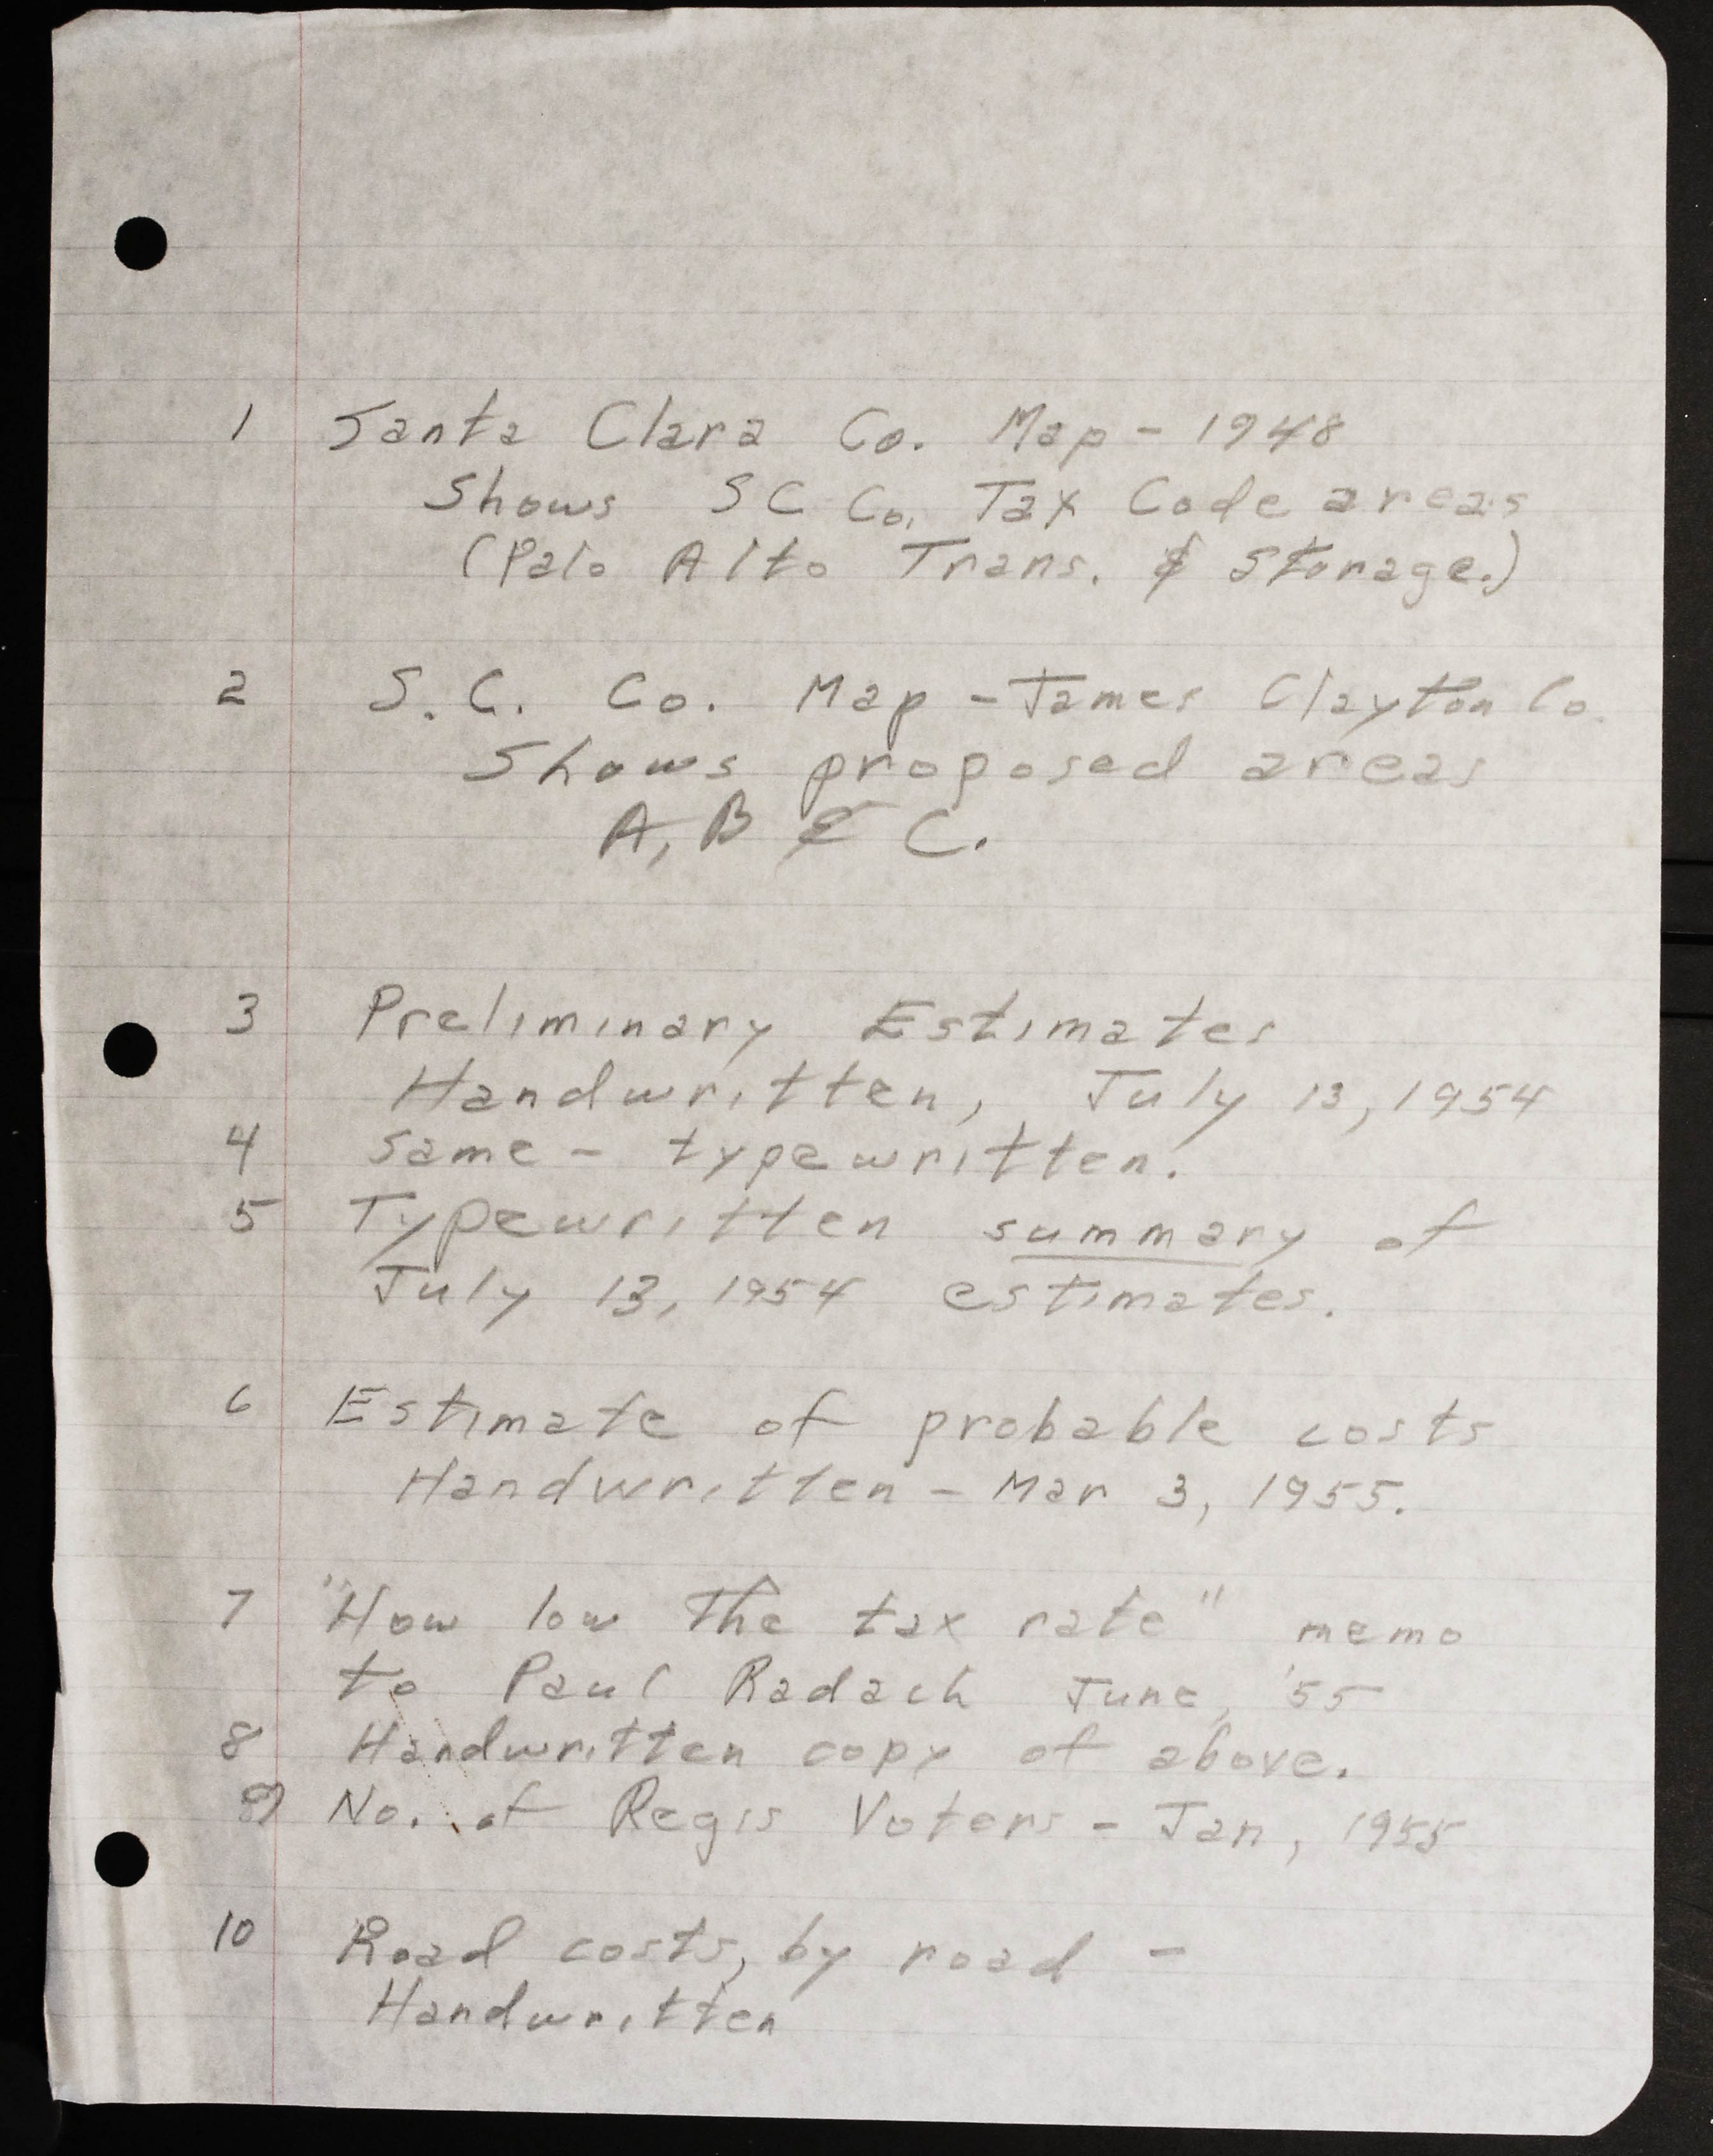 1 Santa Clara Co. Map - 1948
Shows S C Co. Tax Code areas
(Palo Alto Trans. & Storage.)
2 S. C. Co. Map - James Clayton Co.
Shows proposed areas
A, B & C.
3 Preliminary Estimates
Handwritten, July 13, 1954
4 Same - typewritten.
5 Typewritten summary of
July 13, 1954 estimates.
6 Estimate of probable costs
Handwritten - Mar 3, 1955.
7 "How low the tax rate" memo
to Paul Radach June, '55
8 Handwritten copy of above.
9 No. of Regis Voters - Jan, 1955
10 Road costs, by road -
Handwritten